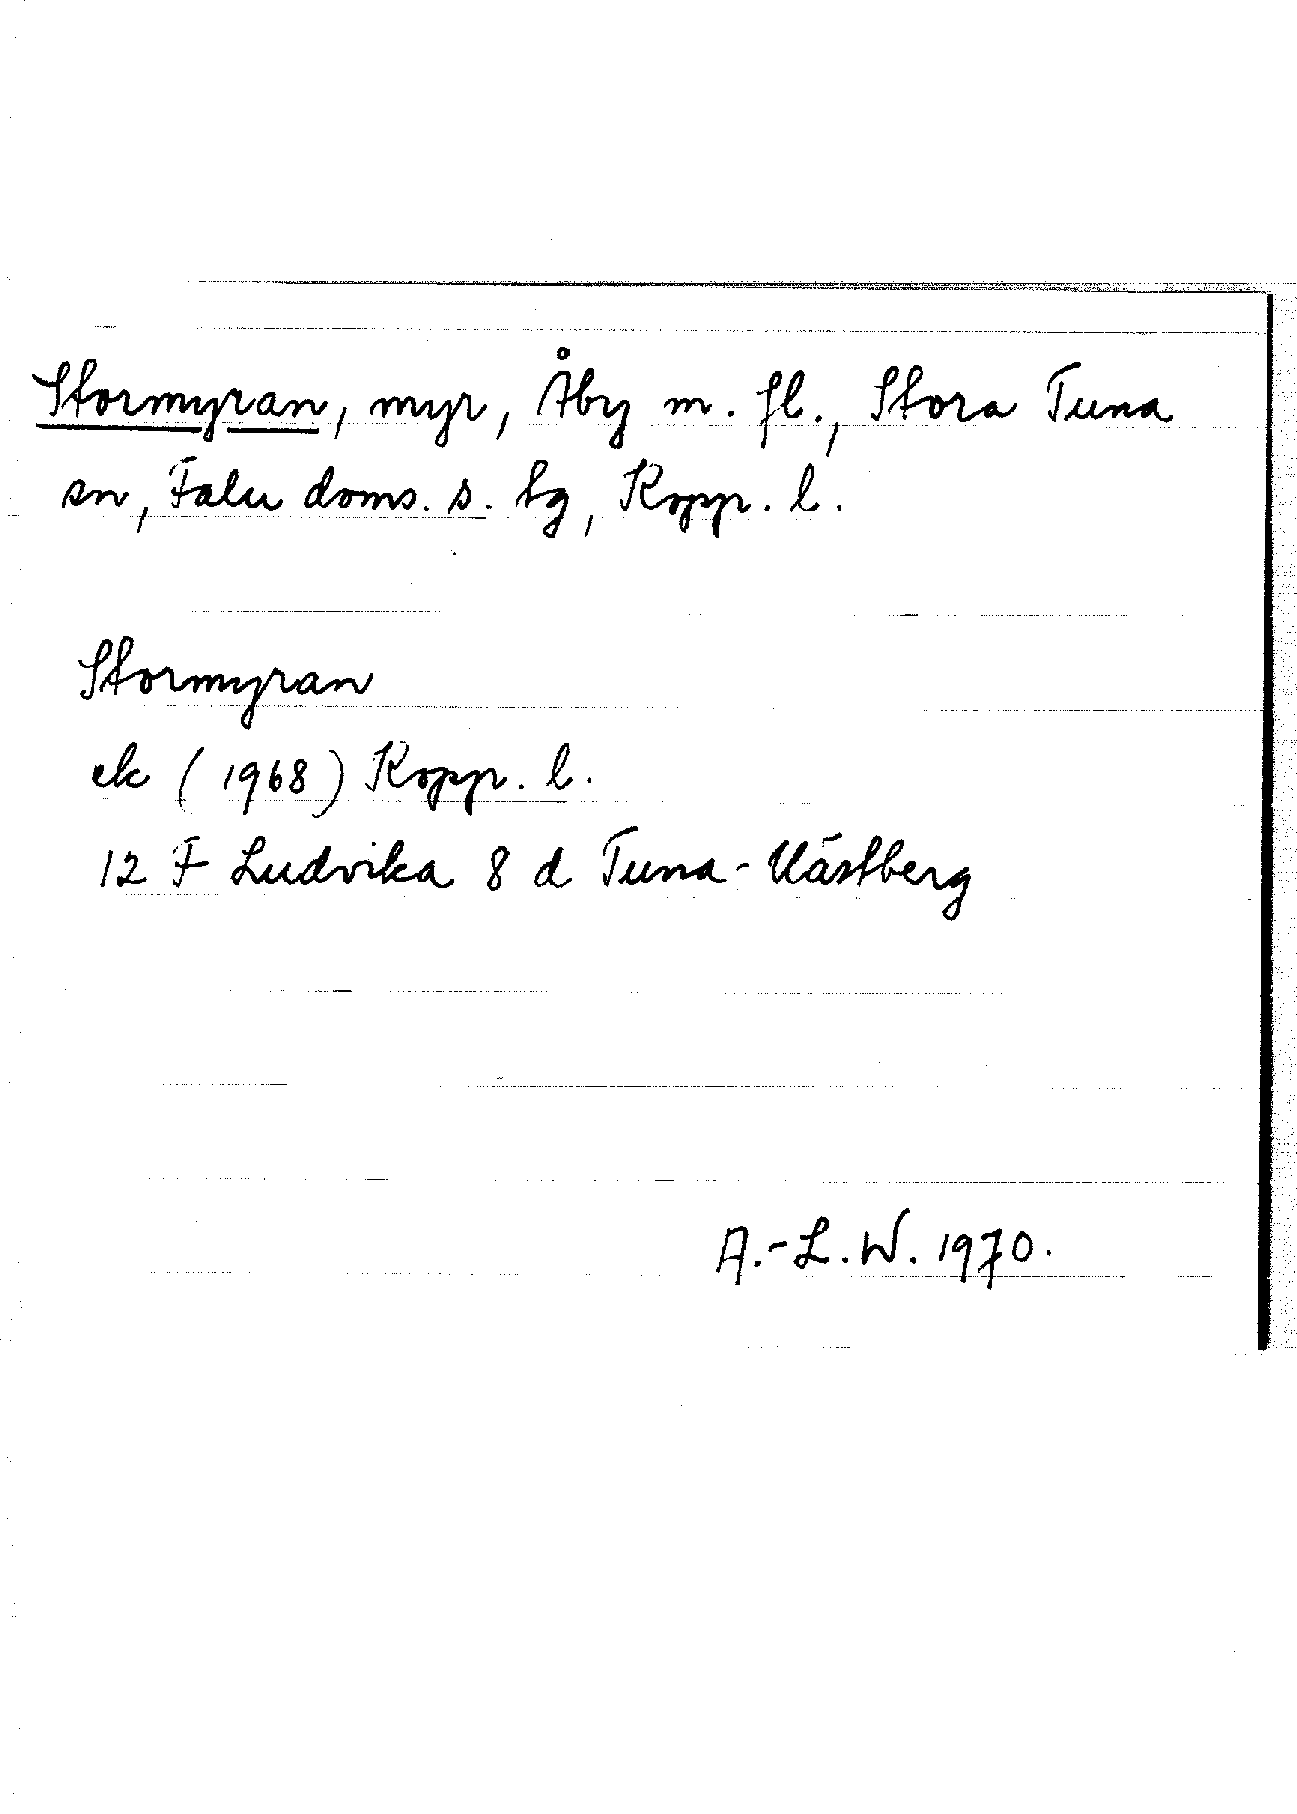 Stormyran, myr, Åby m. fl., Stora Tuna
sn, Falu doms. s. tg, Kopp. l.
Stormyran
ek (1968) Kopp. l.
12 F Ludvika 8 d Tuna-Västberg
A.-L.W. 1970.